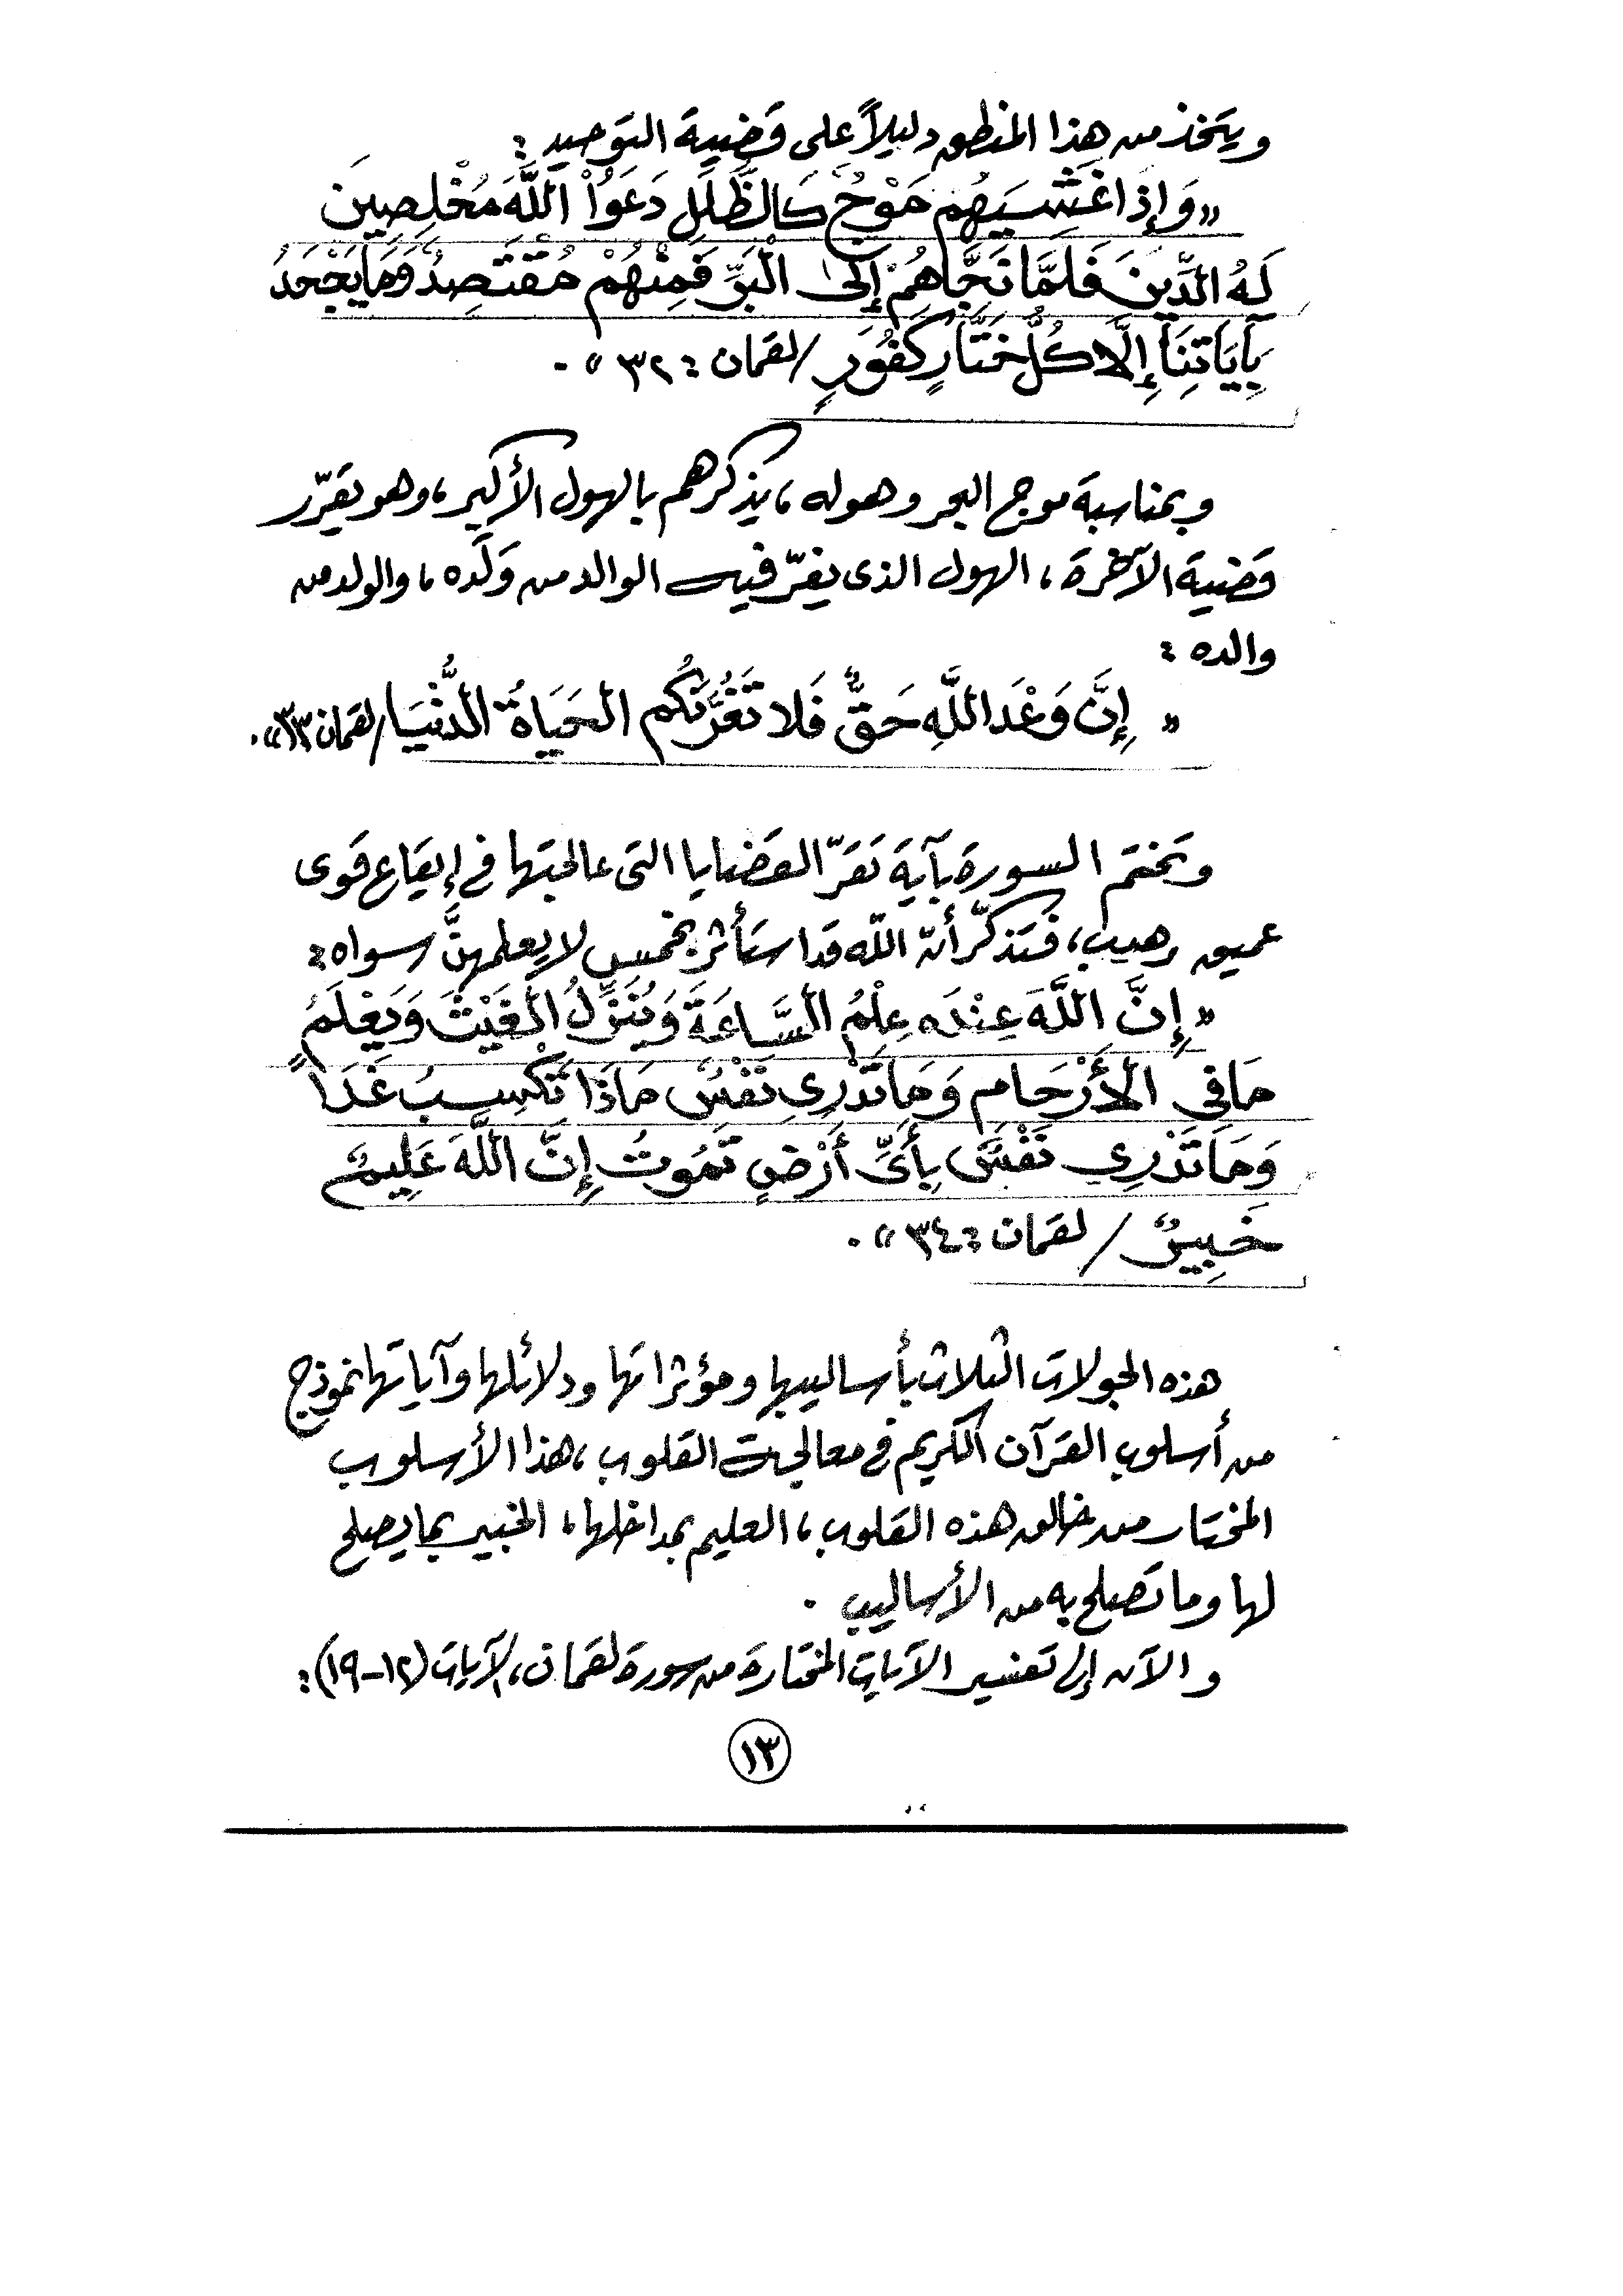 ويتخذ من هذا المنطق دليلاً على قضية التوحيد :
«وَإِذَا غَشِيَهُم مَوْجٌ كَالظُّلَلِ دَعَوُاْ اللَّهَ مُخْلِصِينَ
لَهُ الدِّينَ فَلَمَّا نَجَّاهُمْ إِلَىٰ الْبَرِّ فَمِنْهُمْ مُقْتَصِدٌ وَمَا يَجْحَدُ
بِآيَاتِنَا إِلَّا كُلُّ خَتَّارٍ كَفُورٍ / لقمان : ٣٢ » .
وبمناسبة موج البحر وهوله ، يذكرهم بالهول الأكبر ، وهو يقرّر
قضية الآخرة ، الهول الذى يفرّ فيه الوالد من وَلَده ، والولد من
والده :
« إِنَّ وَعْدَ اللَّهِ حَقٌّ فَلا تَغُرَّنَّكُم الحَيَاةُ الدُّنْيَا / لقمان ٣٣ » .
وتختم السورة بآية تقرّ القضايا التى عالجتها في إيقاع قوى
عميق رهيب ، فتذكّر أنّ اللّه قد استأثر بخمس لا يعلمهنَّ سواه :
« إِنَّ اللَّهَ عِنْدَه عِلْمُ السَّاعَةَ وَيُنَزِّلُ الْغَيْثَ وَيَعْلَمُ
مَا فِي الأَرْحَام وَمَا تَدْرِي نَفْسٌ مَاذَا تَكْسِبُ غَدَاً
وَمَا تَدْرِي نَفْسٌ بِأَىِّ أَرْضٍ تَمُوتُ إِنَّ اللَّهَ عَلِيمٌ
خَبِيرٌ / لقمان : ٣٤ » .
هذه الجولات الثلاث بأساليبها ومؤثراتها ودلائلها وآياتها نموذج
من أسلوب القرآن الكريم في معالجة القلوب ، هذا الأسلوب
المختار من خالق هذه القلوب ، العليم بمداخلها ، الخبير بما يصلح
لها وما تصلح به من الأساليب .
والآن إلى تفسير الآيات المختارة من سورة لقمان ، الآيات (١٢-١٩) :
١٣